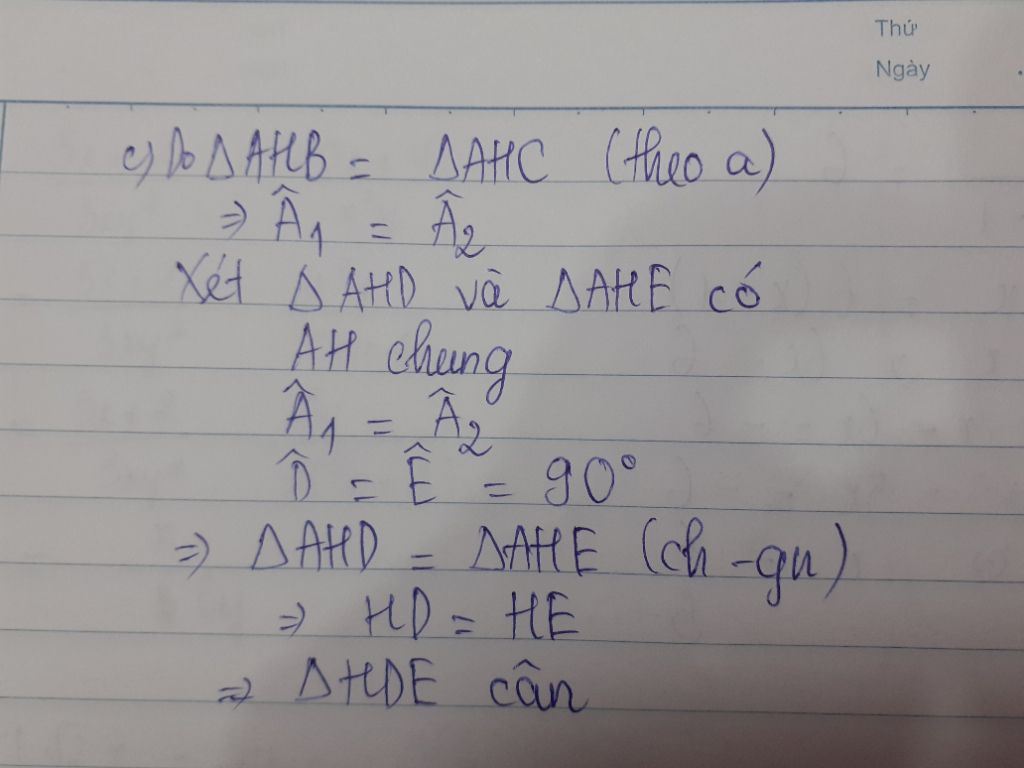 Thứ
Ngày
c) Do ΔAHB = ΔAHC (theo a)
⇒ Â₁ = Â₂
Xét ΔAHD và ΔAHE có
AH chung
Â₁ = Â₂
D̂ = Ê = 90°
⇒ ΔAHD = ΔAHE (ch - gn)
⇒ HD = HE
⇒ ΔHDE cân